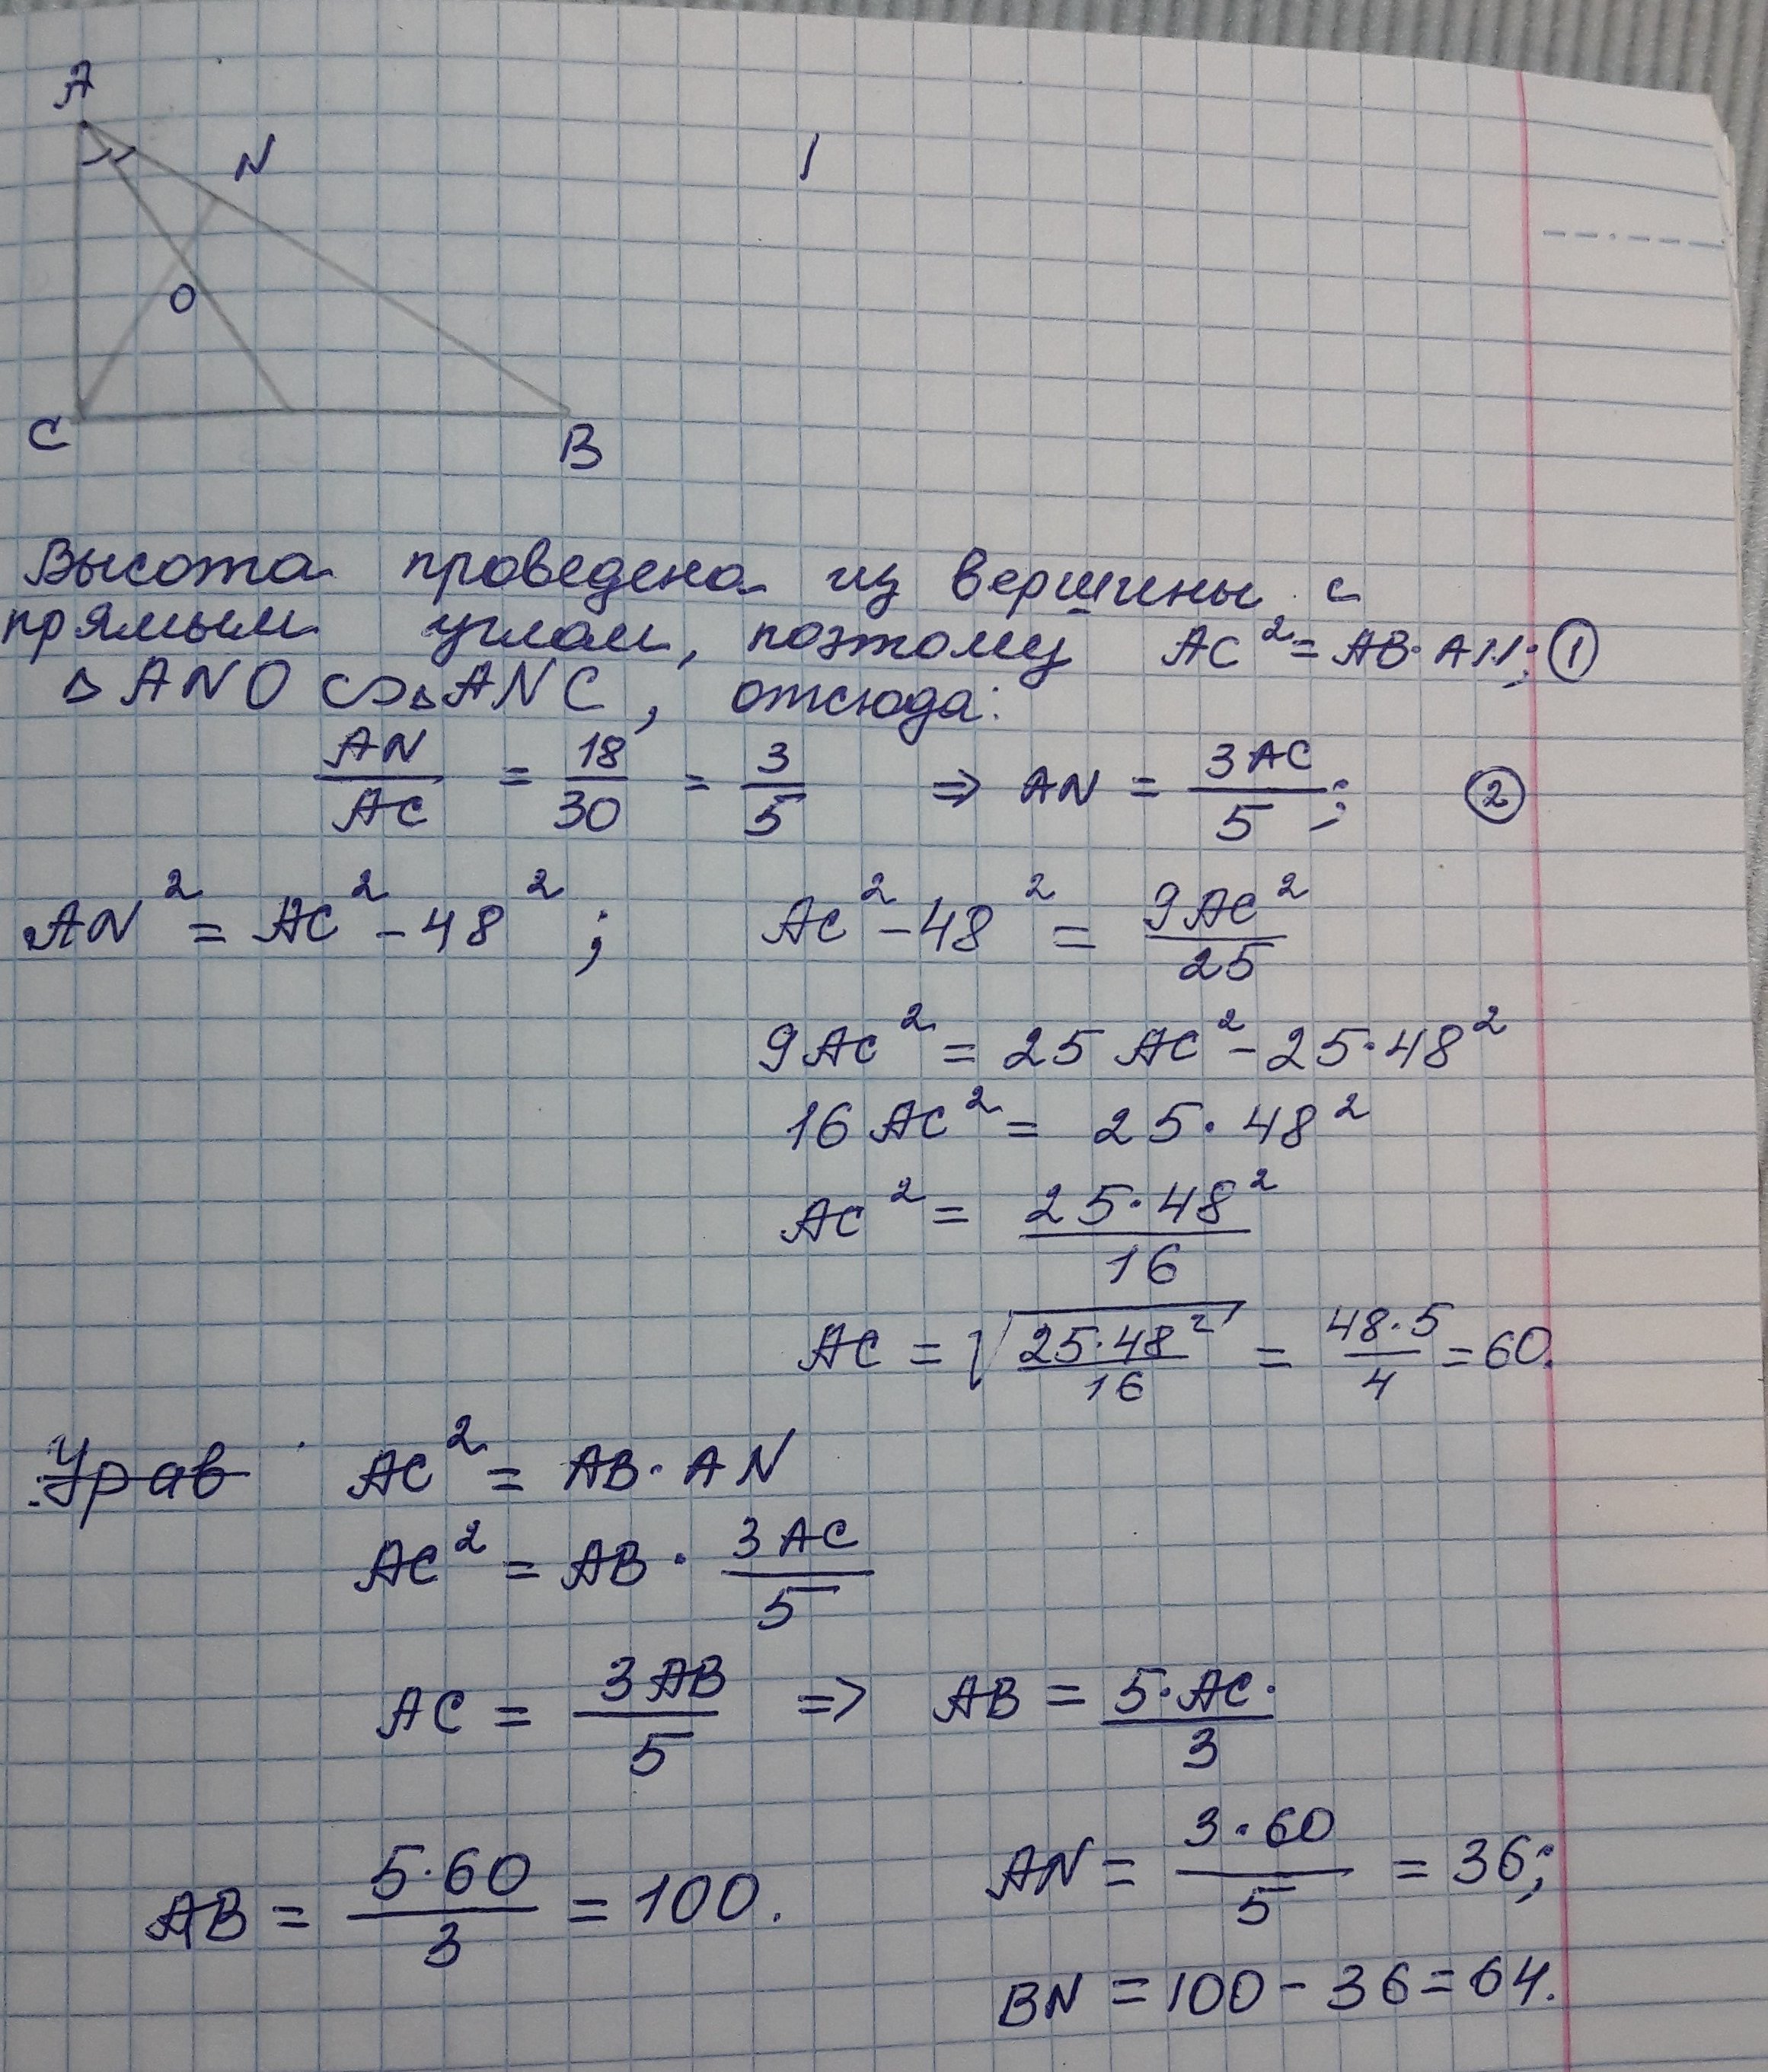 A
N
O
C
B
Высота проведена из вершины с
прямым углом, поэтому AC² = AB · AN; ①
△ANO ∽ △ANC, отсюда:
AN/AC = 18/30 = 3/5 ⇒ AN = 3AC/5; ②
AN² = AC² - 48²; AC² - 48² = 9AC²/25
9AC² = 25 AC² - 25 · 48²
16 AC² = 25 · 48²
AC² = 25 · 48²/16
AC = √(25 · 48²/16) = 48 · 5/4 = 60.
Урав AC² = AB · AN
AC² = AB · 3AC/5
AC = 3AB/5 => AB = 5 · AC ·/3
AB = 5 · 60/3 = 100. AN = 3 · 60/5 = 36;
BN = 100 - 36 = 64.